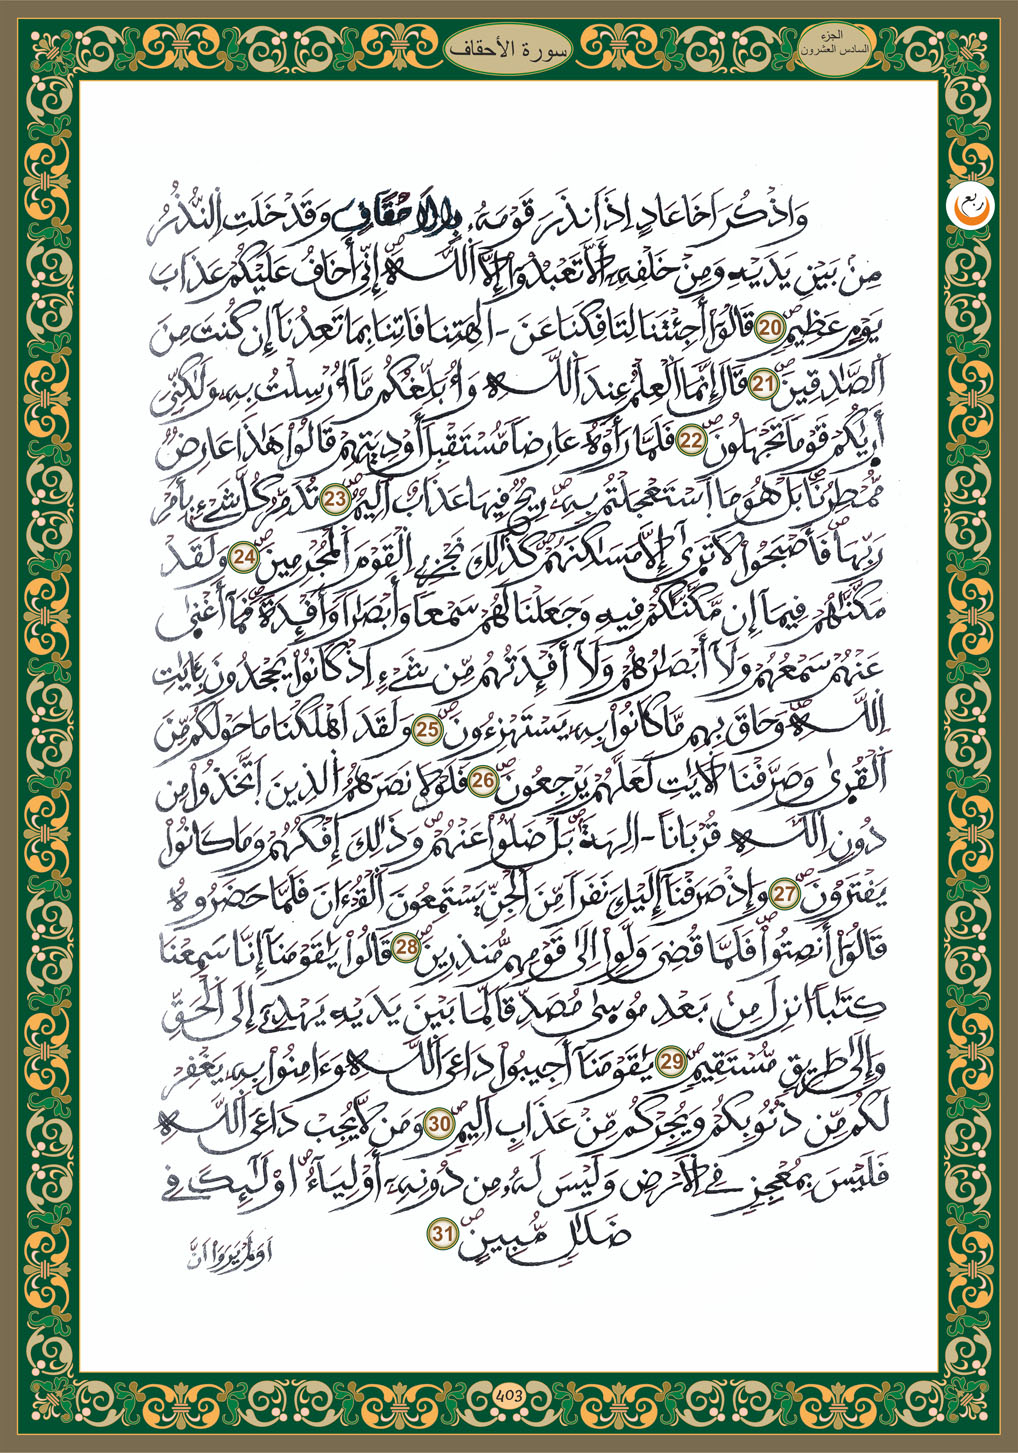 سورة الأحقاف
الجزء
السادس العشرون
ربع
وَاذْكُرَ اَخَا عَادٍ اِذَ اَنذَرَ قَوْمَهُۥ بِالَاحْقَافِ وَقَدْ خَلَتِ اِلنُّذُرُ
مِنۢ بَيْنِ يَدَيْهِ وَمِنْ خَلْفِهِۦٓ أَلَّا تَعْبُدُوٓاْ إِلَّا اَللَّهَۖ إِنِّيٓ أَخَافُ عَلَيْكُمْ عَذَابَ
يَوْمٍ عَظِيمٖۖ 20 قَالُوٓاْ أَجِئْتَنَا لِتَافِكَنَا عَنَ ـ اٰلِهَتِنَا فَاتِنَا بِمَا تَعِدُنَآ إِن كُنتَ مِنَ
اَلصَّٰدِقِينَۖ 21 قَالَ إِنَّمَا اَلْعِلْمُ عِندَ اَللَّهِ وَأُبَلِّغُكُم مَّآ أُرْسِلْتُ بِهِۦ وَلَٰكِنِّيَ
أَرٜيٰكُمْ قَوْماٗ تَجْهَلُونَۖ 22 فَلَمَّا رَأَوْهُ عَارِضاٗ مُّسْتَقْبِلَ أَوْدِيَتِهِمْ قَالُواْ هَٰذَا عَارِضٞ
مُّمْطِرُنَاۖ بَلْ هُوَ مَا اَسْتَعْجَلْتُم بِهِۦۖ رِيحٞ فِيهَا عَذَابٌ اَلِيمٞۖ 23 تُدَمِّرُ كُلَّ شَےْءِۢ بِأَمْرِ
رَبِّهَاۖ فَأَصْبَحُواْ لَا تَرٜىٰٓ إِلَّا مَسَٰكِنَهُمْۖ كَذَٰلِكَ نَجْزِے اِلْقَوْمَ اَلْمُجْرِمِينَۖ 24 وَلَقَدْ
مَكَّنَّٰهُمْ فِيمَآ إِن مَّكَّنَّٰكُمْ فِيهِ وَجَعَلْنَا لَهُمْ سَمْعاٗ وَأَبْصَٰراٗ وَأَفْـِٕدَةٗۖ فَمَآ أَغْنٜىٰ
عَنْهُمْ سَمْعُهُمْ وَلَآ أَبْصَٰرُهُمْ وَلَآ أَفْـِٕدَتُهُم مِّن شَےْءٍ اِذْ كَانُواْ يَجْحَدُونَ بِـَٔايَٰتِ
اِللَّهِۖ وَحَاقَ بِهِم مَّا كَانُواْ بِهِۦ يَسْتَهْزِءُونَۖ 25 وَلَقَدَ اَهْلَكْنَا مَا حَوْلَكُم مِّنَ
اَلْقُرٜىٰ وَصَرَّفْنَا اَلَايَٰتِ لَعَلَّهُمْ يَرْجِعُونَۖ 26 فَلَوْلَا نَصَرَهُمُ اُلذِينَ اَتَّخَذُواْ مِن
دُونِ اِللَّهِ قُرْبَاناً ـ اٰلِهَةَۢۖ بَلْ ضَلُّواْ عَنْهُمْۖ وَذَٰلِكَ إِفْكُهُمْ وَمَا كَانُواْ
يَفْتَرُونَۖ 27 وَإِذْ صَرَفْنَآ إِلَيْكَ نَفَراٗ مِّنَ اَلْجِنِّ يَسْتَمِعُونَ اَلْقُرْءَانَ فَلَمَّا حَضَرُوهُ
قَالُوٓاْ أَنصِتُواْۖ فَلَمَّا قُضِيَ وَلَّوِاْ اِلَىٰ قَوْمِهِم مُّنذِرِينَۖ 28 قَالُواْ يَٰقَوْمَنَآ إِنَّا سَمِعْنَا
كِتَٰباً اُنزِلَ مِنۢ بَعْدِ مُوسٜىٰ مُصَدِّقاٗ لِّمَا بَيْنَ يَدَيْهِ يَهْدِےٓ إِلَى اَلْحَقِّ
وَإِلَىٰ طَرِيقٖ مُّسْتَقِيمٖۖ 29 يَٰقَوْمَنَآ أَجِيبُواْ دَاعِيَ اَللَّهِ وَءَامِنُواْ بِهِۦ يَغْفِرْ
لَكُم مِّن ذُنُوبِكُمْ وَيُجِرْكُم مِّنْ عَذَابٍ اَلِيمٖۖ 30 وَمَن لَّا يُجِبْ دَاعِيَ اَللَّهِ
فَلَيْسَ بِمُعْجِزٖ فِے اِلَارْضِ وَلَيْسَ لَهُۥ مِن دُونِهِۦٓ أَوْلِيَآءُۖ اُوْلَٰٓئِكَ فِے
ضَلَٰلٖ مُّبِينٍۖ 31
اَوَلَمْ يَرَوَاْ اَنَّ
403